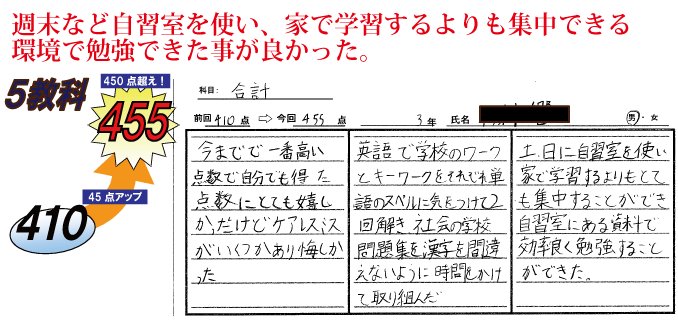 週末など自習室を使い、家で学習するよりも集中できる
環境で勉強できた事が良かった。
5教科
450点超え!
455
45点アップ
410
科目: 合計
前回 410 点 ⇨ 今回 455 点 3年 氏名 男・女
今までで一番高い
点数で自分でも得た
点数にとても嬉し
か、だけどケアレスミス
がいくつかあり悔しか
った
英語で学校のワーク
とキーワークをそれぞれ単
語のスペルに気をつけて2
回解き、社会の学校
問題集を漢字を間違
えないように時間をかけ
て取り組んだ
土、日に自習室を使い
家で学習するよりもとて
も集中することができ
自習室にある資料で
効率良く勉強すること
ができた。